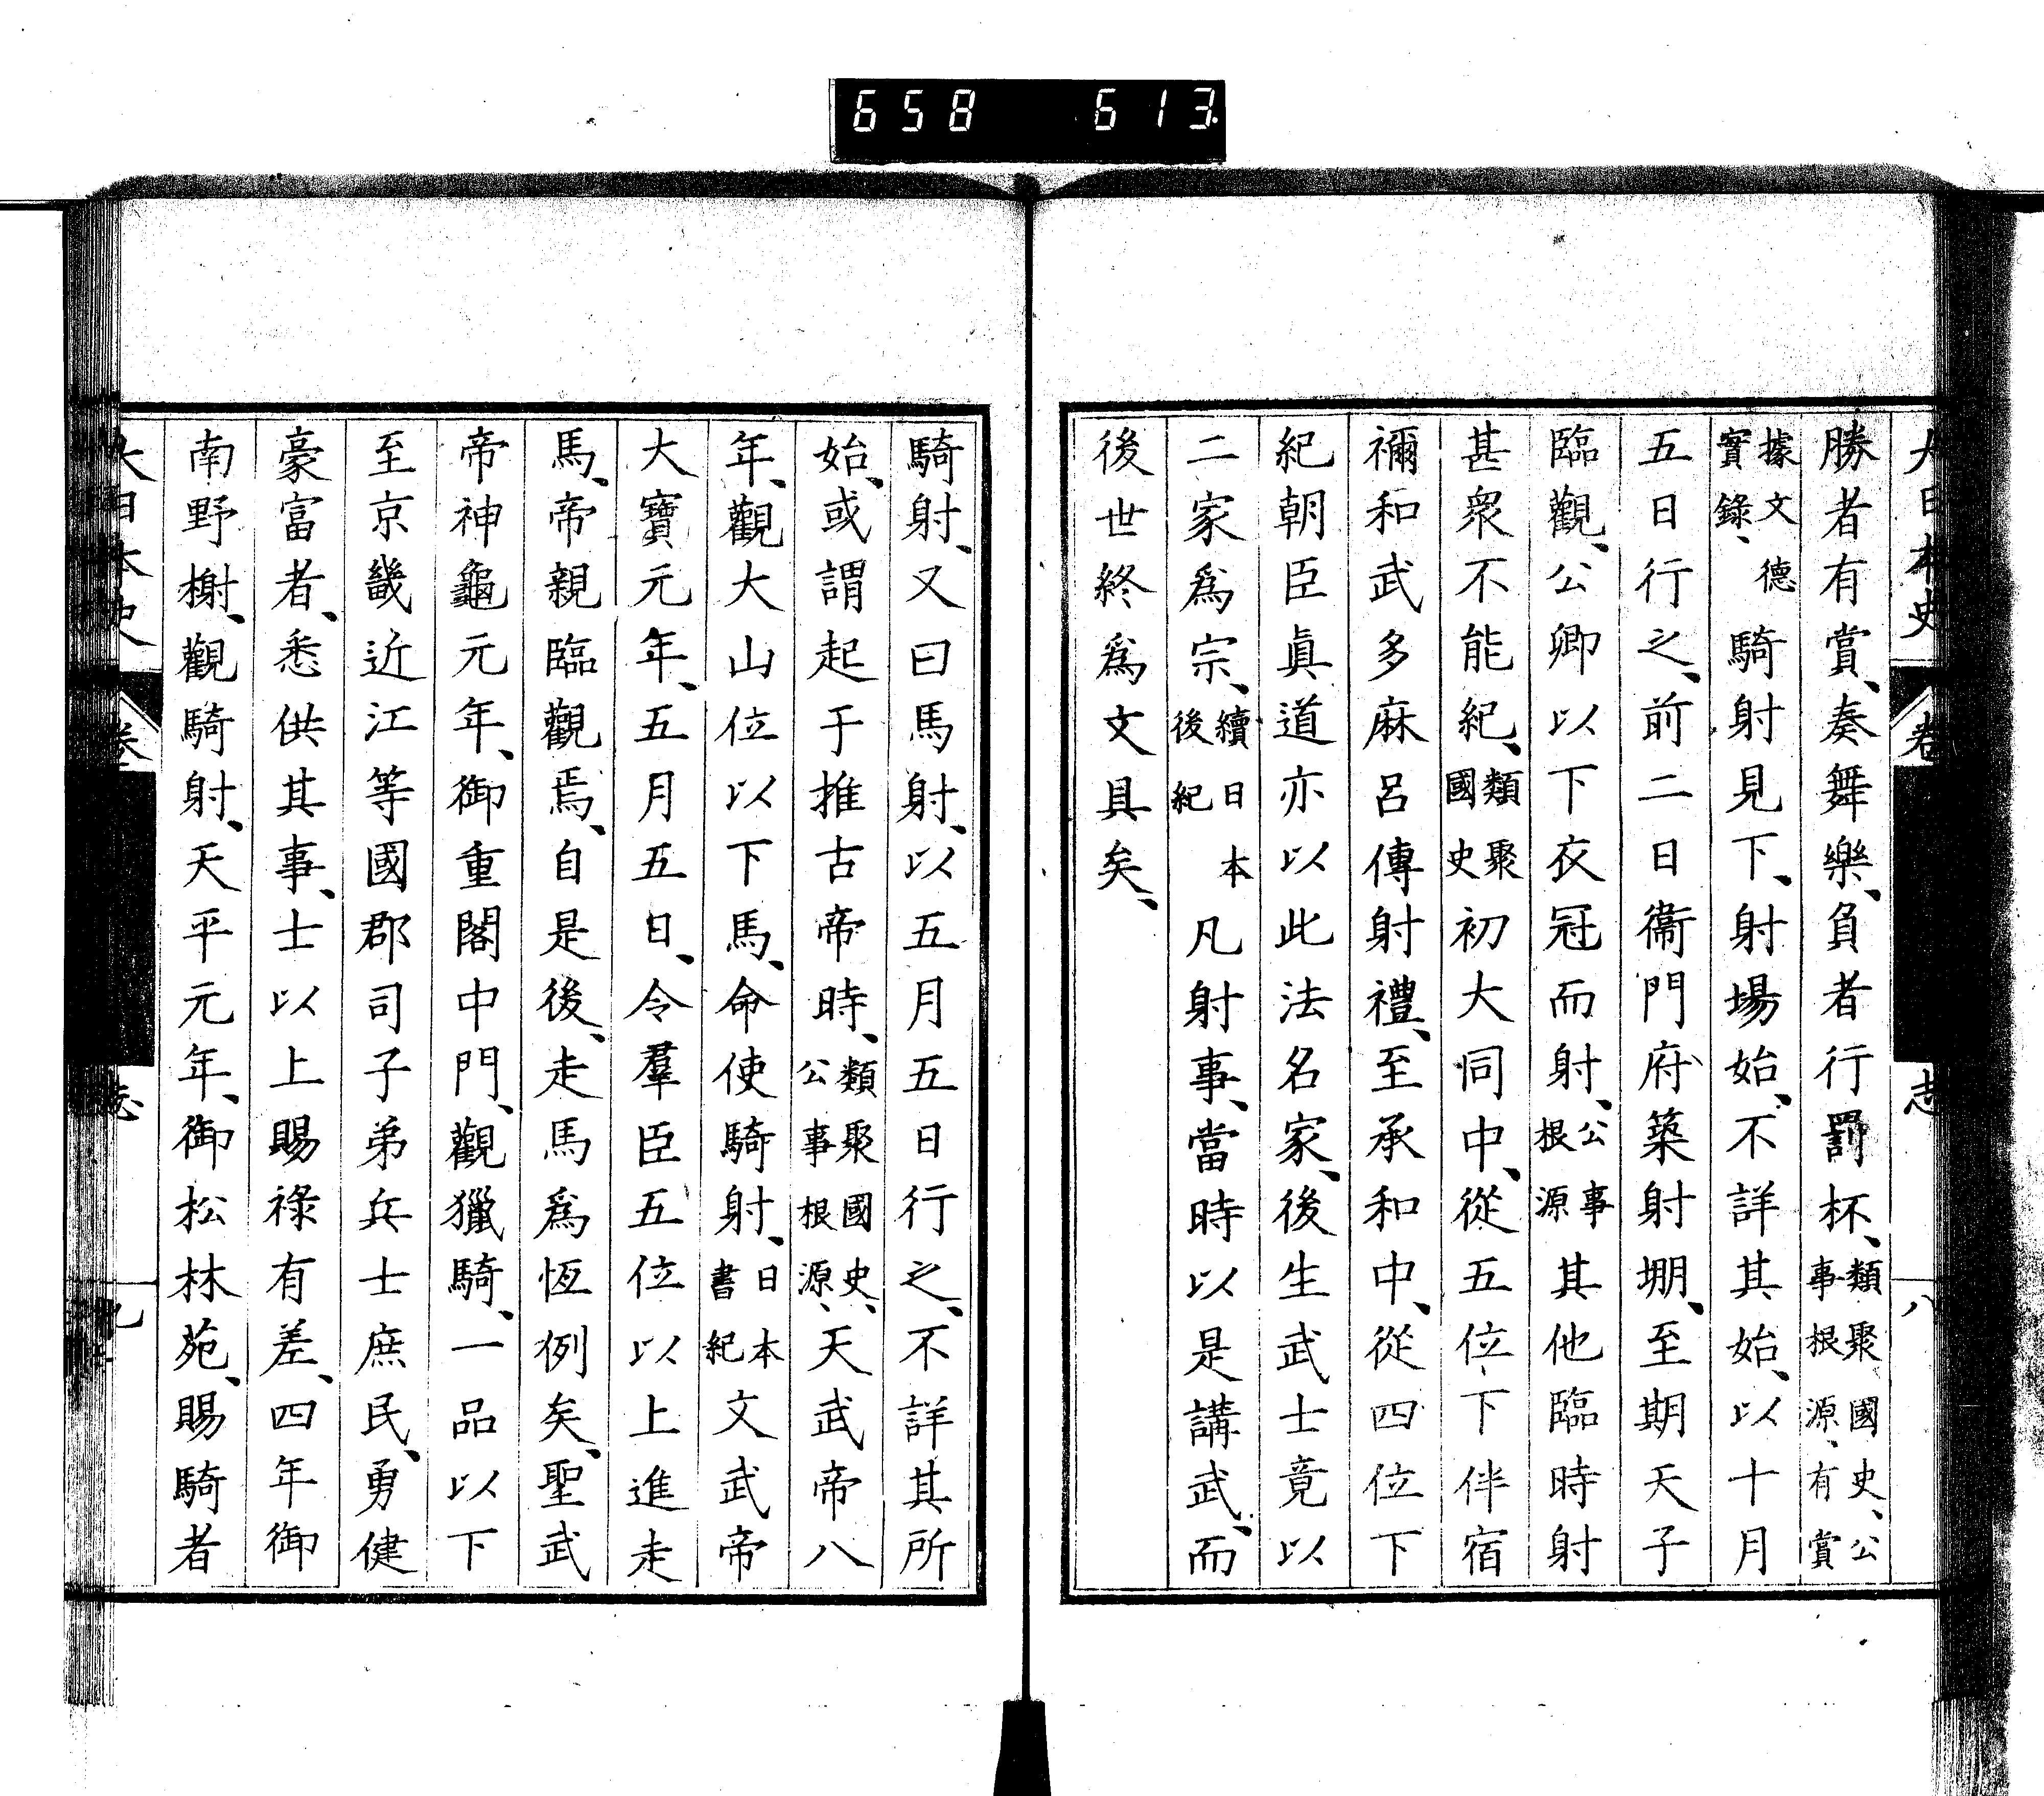 658 613
大日本史 卷 志 八
勝者有賞、奏舞樂、負者行罰杯、類聚國史、公事根源、有賞
據文德實錄、騎射見下、射場始、不詳其始、以十月
五日行之、前二日衞門府築射堋、至期天子
臨觀、公卿以下衣冠而射、公事根源其他臨時射
甚衆不能紀、類聚國史初大同中、從五位下伴宿
禰和武多麻呂傳射禮、至承和中、從四位下
紀朝臣眞道亦以此法名家、後生武士竟以
二家爲宗、續日本後紀凡射事、當時以是講武、而
後世終爲文具矣、
騎射、又曰馬射、以五月五日行之、不詳其所
始、或謂起于推古帝時、類聚國史、公事根源、天武帝八
年、觀大山位以下馬、命使騎射、日本書紀文武帝
大寶元年、五月五日、令羣臣五位以上進走
馬、帝親臨觀焉、自是後、走馬爲恆例矣、聖武
帝神龜元年、御重閣中門、觀獵騎、一品以下
至京畿近江等國郡司子弟兵士庶民、勇健
豪富者、悉供其事、士以上賜祿有差、四年御
南野榭、觀騎射、天平元年、御松林苑、賜騎者
大日本史 卷 志 九